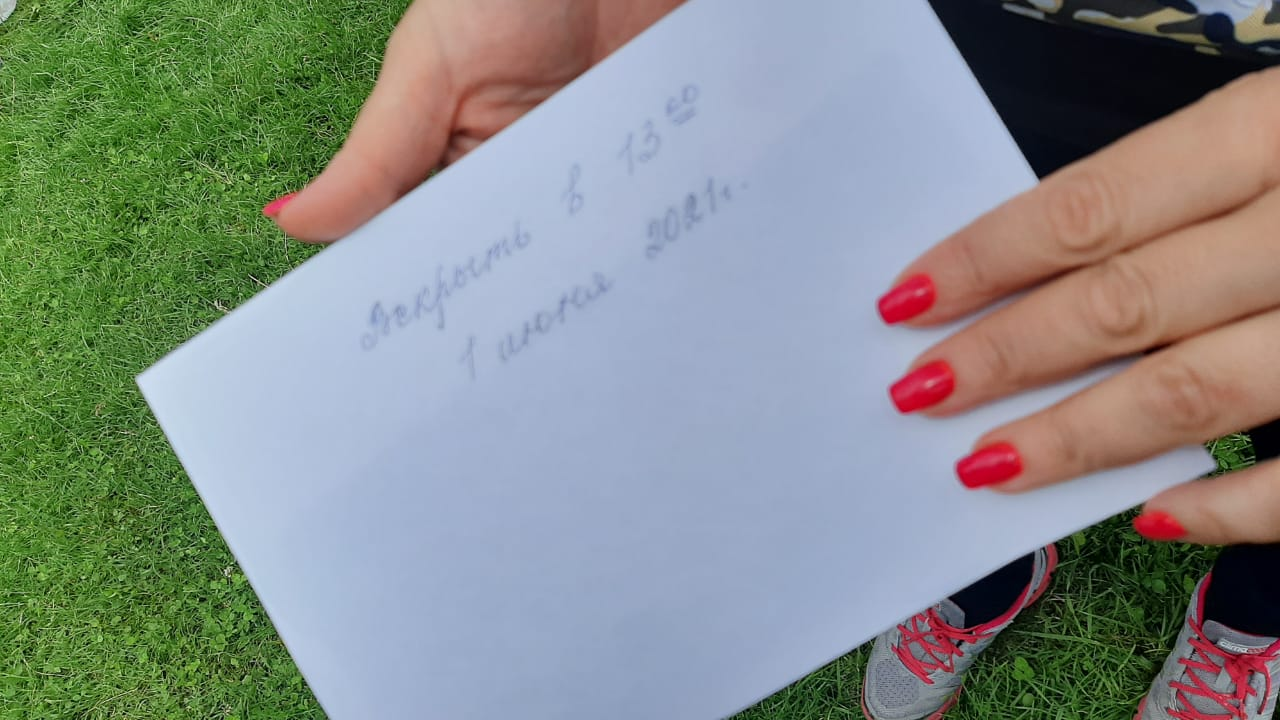 Вскрыть в 13 00
1 июня 2021 г.